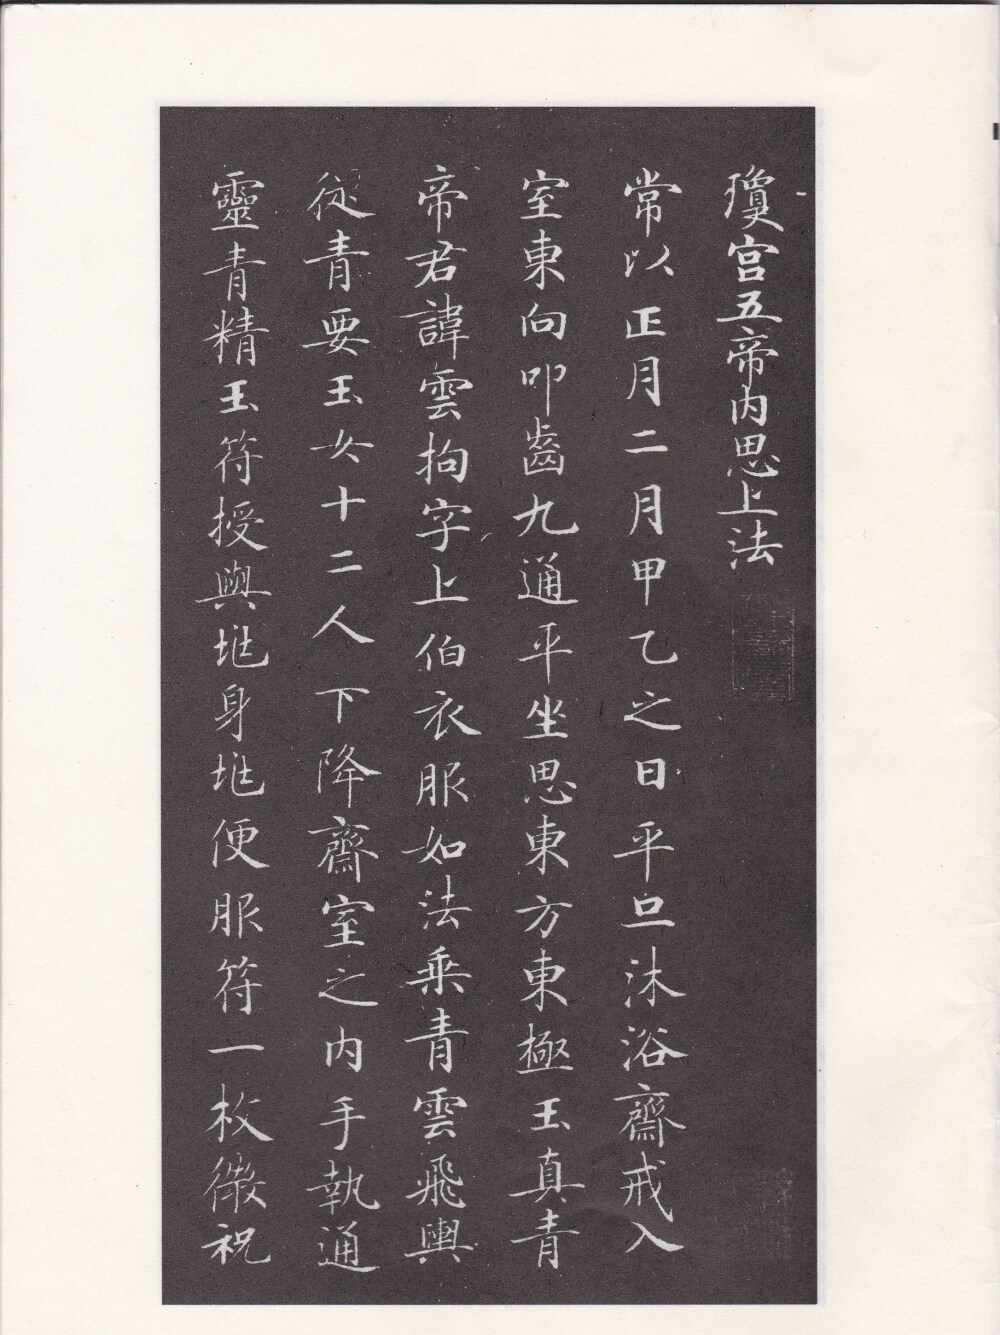 瓊宫五帝内思上法
常以正月二月甲乙之日平旦沐浴齋戒入
室東向叩齒九通平坐思東方東極玉真青
帝君諱雲拘字上伯衣服如法乘青雲飛輿
從青要玉女十二人下降齋室之内手執通
靈青精玉符授與地身地便服符一枚微祝